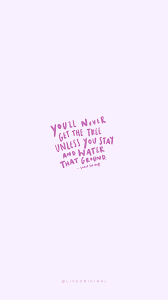 YOU'LL NEVER
GET THE TREE
UNLESS YOU STAY
AND WATER
THAT GROUND